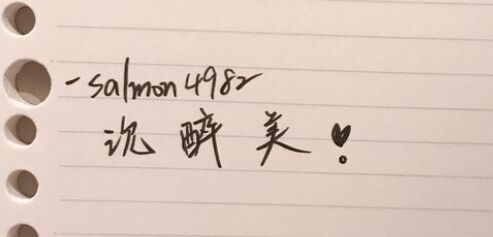 -salmon4982
沉醉美❣